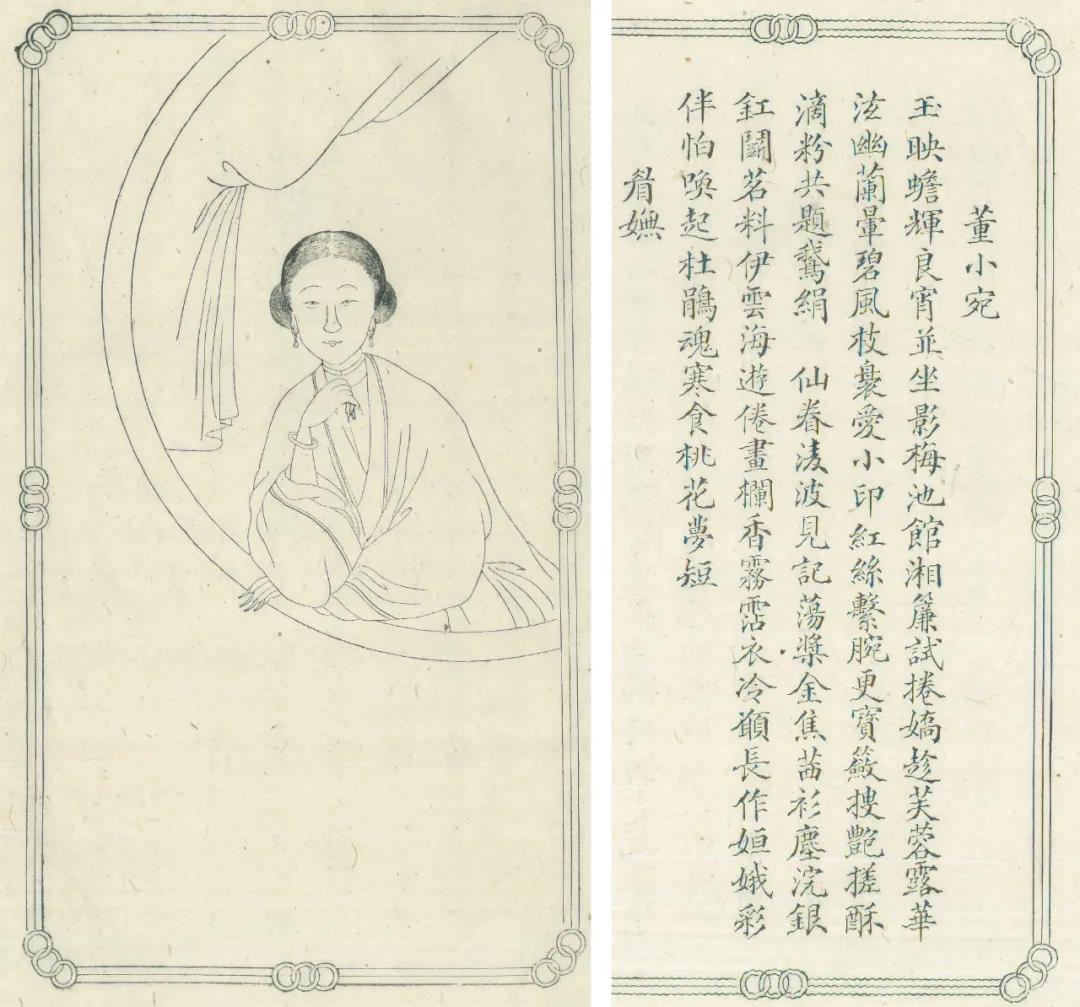 董小宛
玉映蟾輝良宵並坐影梅池館湘簾試捲嬌趁芙蓉露華
泫幽蘭暈碧風枝裊愛小印紅絲繫腕更寶籢捜艷搓酥
滴粉共題鵞絹　仙眷淩波見記蕩槳金焦茜衫塵浣銀
釭鬬茗料伊雲海遊倦畫欄香霧霑衣冷願長作姮娥彩
伴怕喚起杜鵑魂寒食桃花夢短
眉嫵